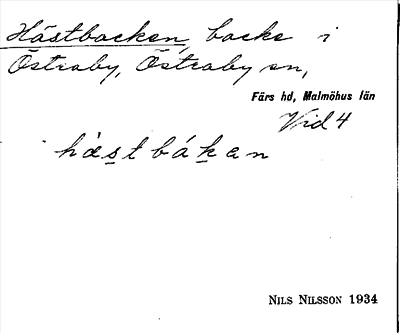 Hästbacken, backe i
Östraby, Östraby sn,
Färs hd, Malmöhus län
Vid 4
hàstbákan
NILS NILSSON 1934